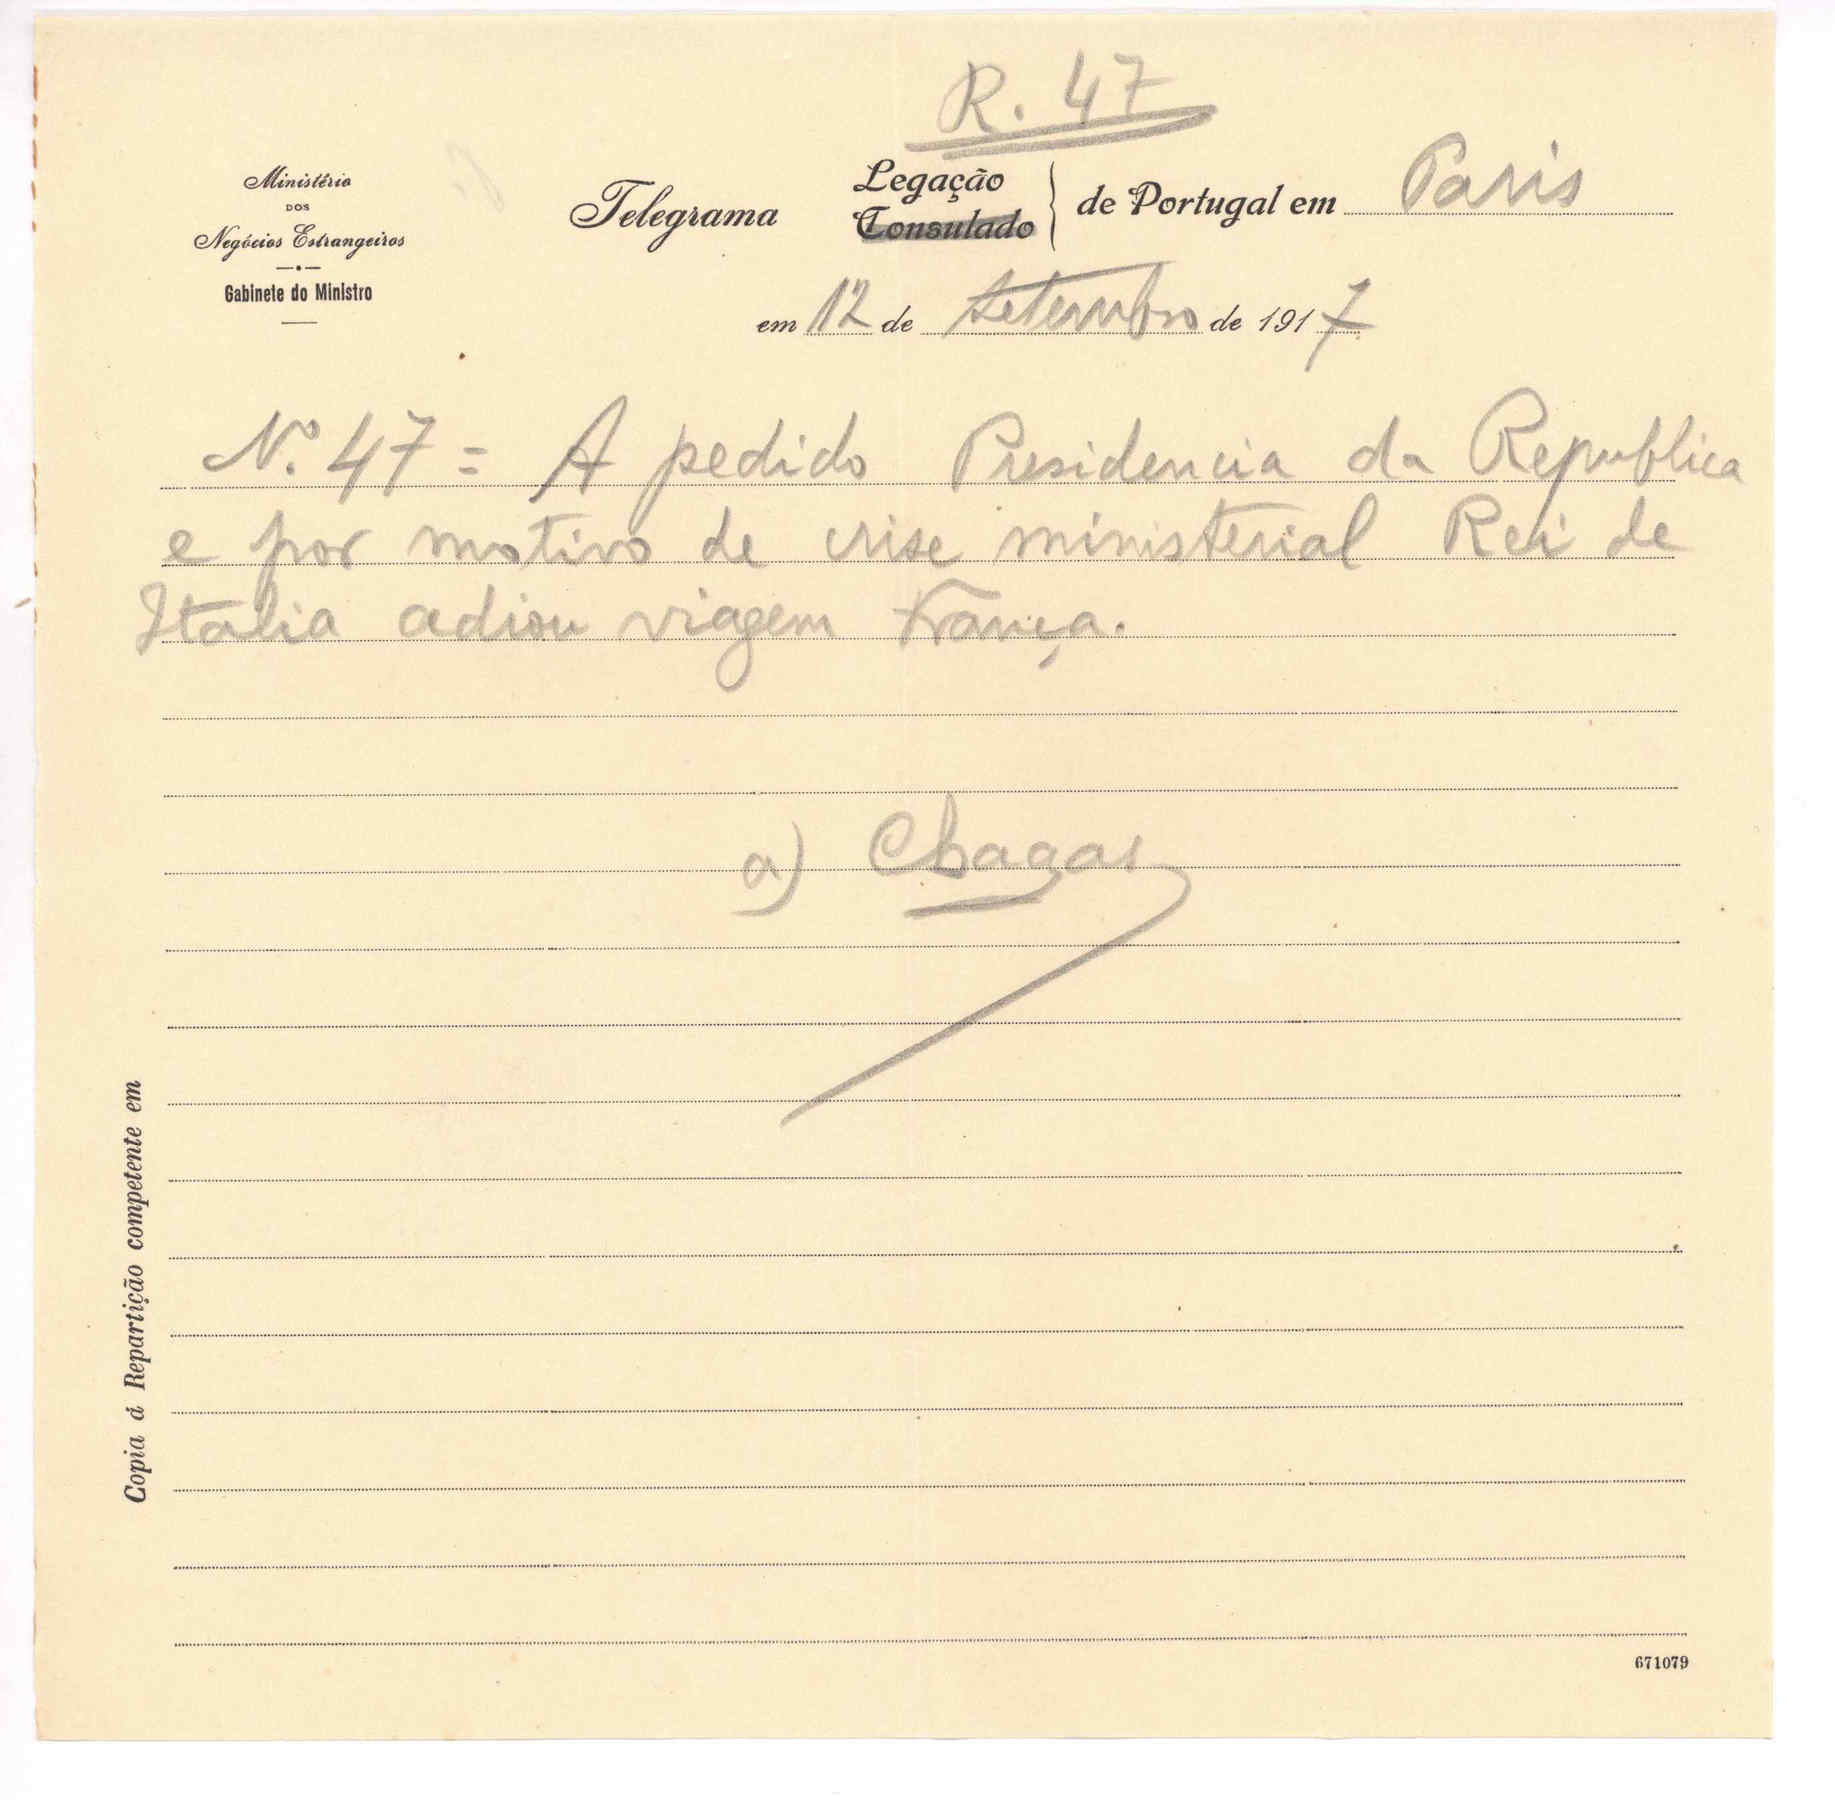 R. 47
Ministério
DOS
Negócios Estrangeiros
Gabinete do Ministro
Telegrama
Legação
Consulado
de Portugal em Paris
em 12 de Setembro de 1917
Nº. 47 = A pedido Presidencia da Republica
e por motivo de crise ministerial Rei de
Italia adiou viagem França.
a) Chagas
Copia á Repartição competente em
671079